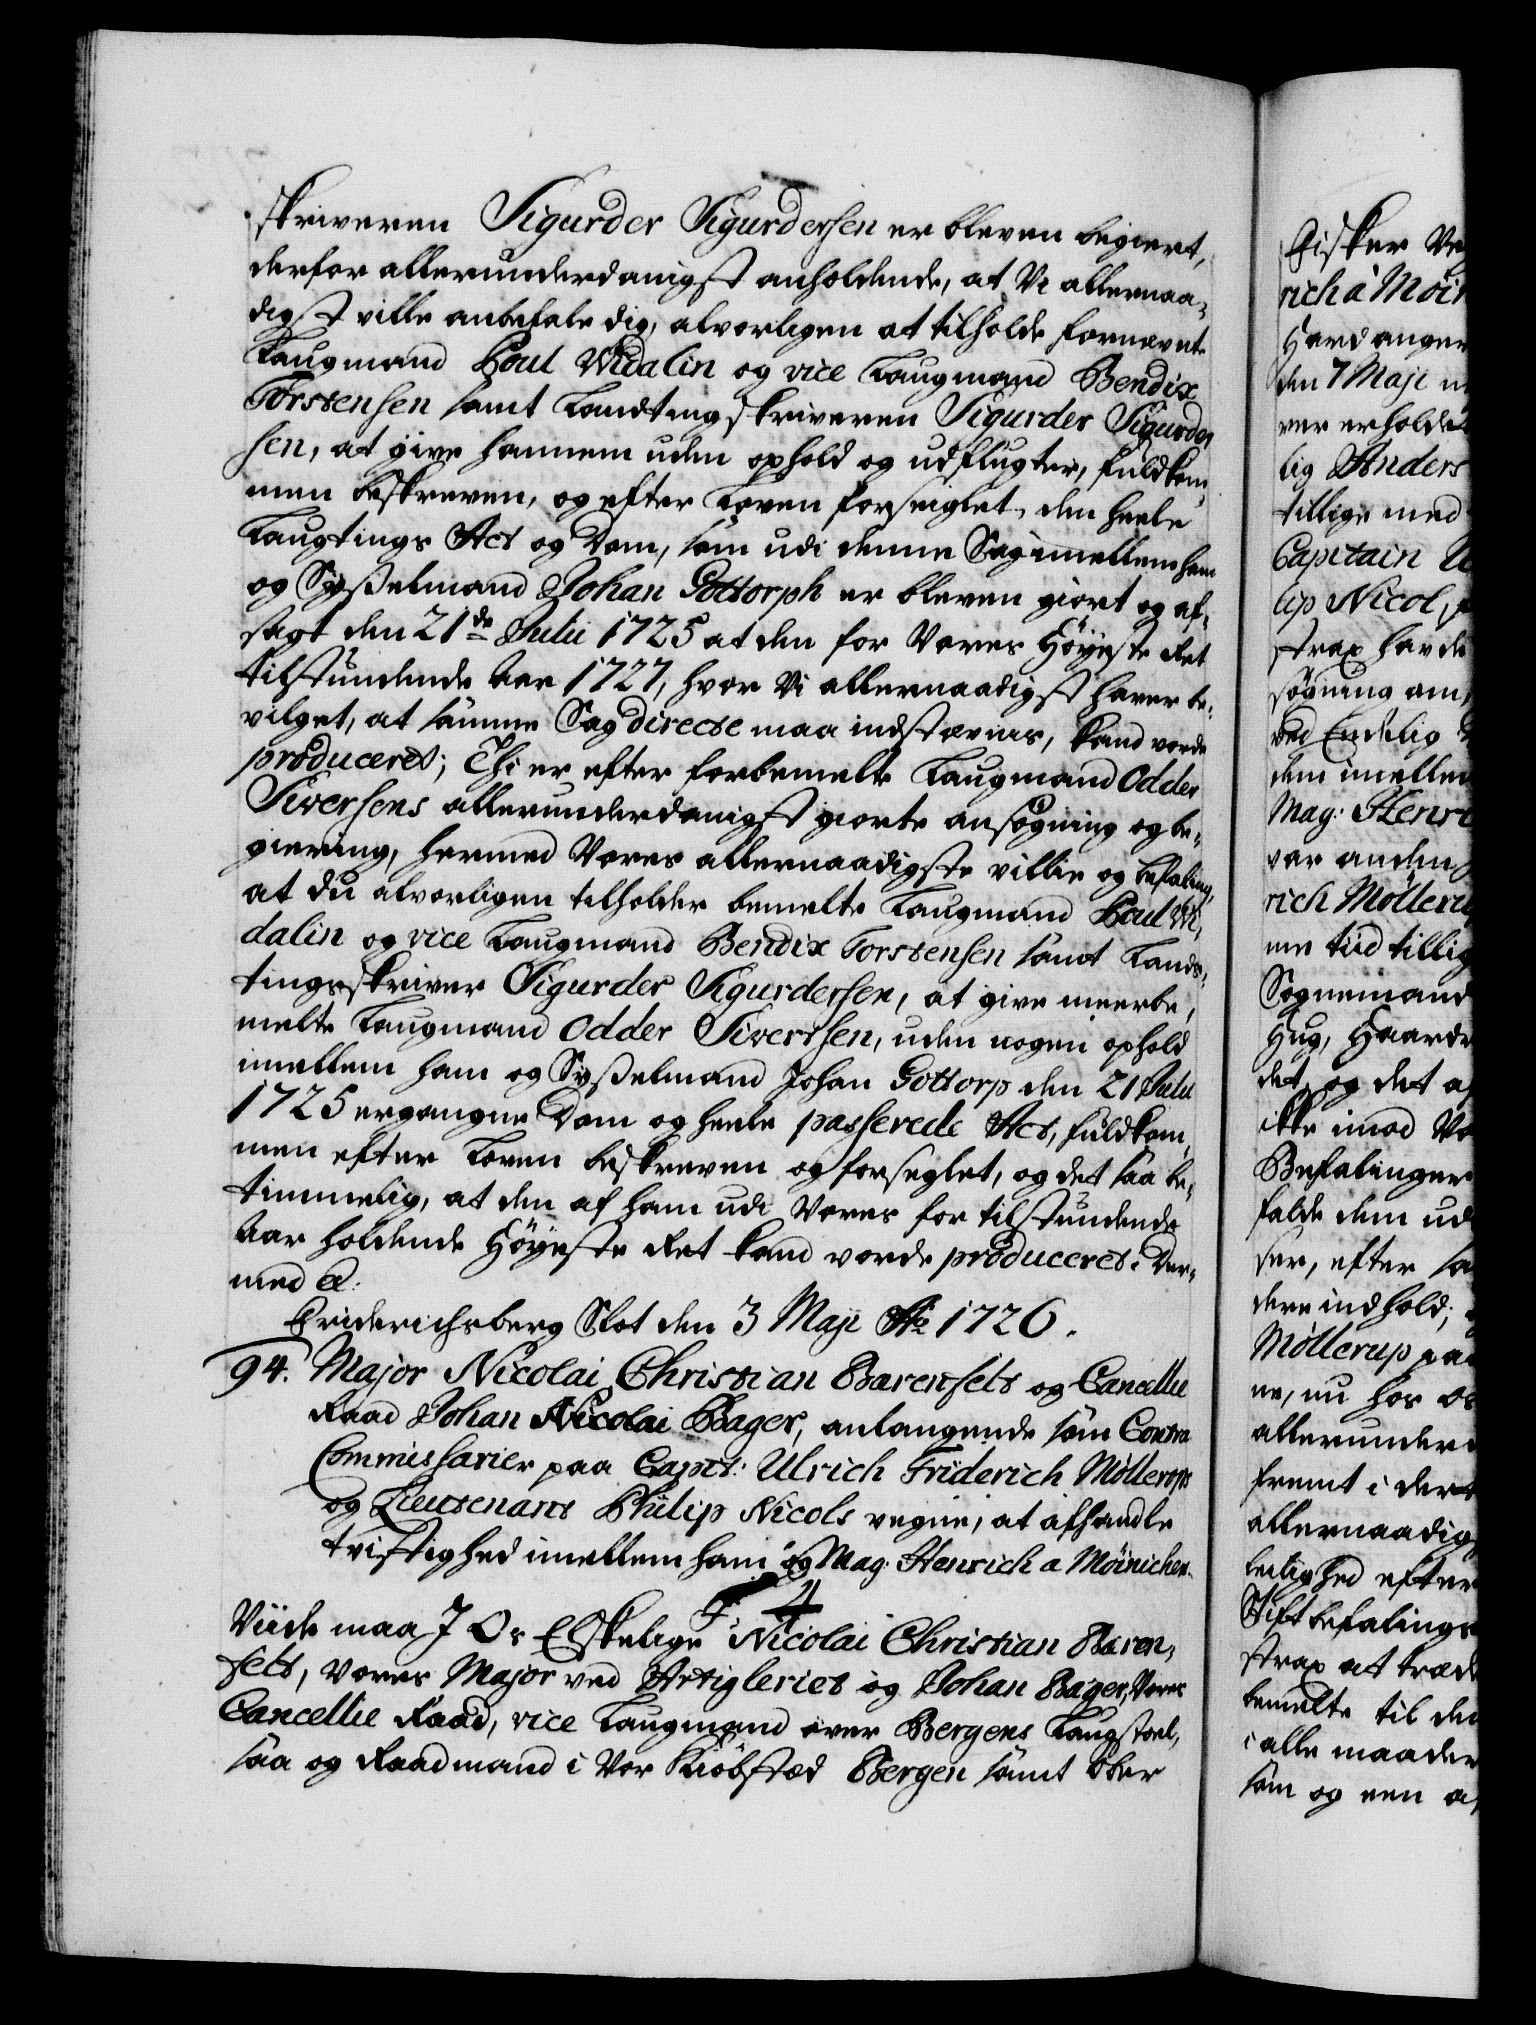 skriveren Sigurder Sigurdersen er bleven begiert,
derfor allerunderdanigst anholdende, at Vi allernaa-
digst ville anbefale dig, alvorligen at tilholde fornævnte
Laugmand Poul Widalin og vice Laugmand Bendix
Torstensen samt Landtingskriveren Sigurder Sigurder
sen, at give hannem uden ophold og udflugter, fuldkom,
men beskreven, og efter Loven forseiglet, den heele
Laugtings Act og Dom, som udi denne Sag imellem ham
og Sysselmand Johan Gottorph er bleven giort og af-
sagt den 21de Julii 1725 at den for Vores Höyeste Ret
tilstundende Aar 1727, hvor Vi allernaadigst haver be-
vilget, at samme Sag directe maa indstævnis, kand vorde
produceret; Thi er efter forbemelte Laugmand Odder
Siversens allerunderdanigst giorte ansøgning og be-
giering, hermed Vores allernaadigste villie og befaling,
at du alvorligen tilholder bemelte Laugmand Poul Wi,
dalin og vice Laugmand Bendix Torstensen samt Lands-
tingsskriver Sigurder Sigurdersen, at give meerbe,
melte Laugmand Odder Sivertsen, uden nogen ophold
imellem ham og Sysselmand Johan Gottorp den 21 Julii
1725 ergangne Dom og heele passerede Act, fuldkom,
men efter Loven beskreven og forseglet, og det saa be-
timmelig, at den af ham udi Vores for tilstundende
Aar holdende Höyeste Ret kand vorde produceret. Der-
med etc.
Friderichsberg Slot den 3 Maji Ao 1726.
94. Major Nicolai Christian Barenfelt og Cancellie
Raad Johan Nicolai Bager, anlangende som Contra
Commissarier paa Capit: Ulrich Friderich Möllerups
og Lieutenant Philip Nicols vegne, at afhandle
tvistighed imellem ham og Mag. Henrich a Möinichen.
F. 4
Viide maa I Os Elskelige Nicolai Christian Baren,
felt, vores Major ved Artigleriet og Johan Bager, Vores
Cancellie Raad, vice Laugmand over Bergens Laugstoel,
saa og Raadmand i Vor Kiöbstæd Bergen samt over
Fisker Ve
rich a Möin
Hardanger
den 7 Maji
ver erholdet
lig Anders
tillige med
Capitain U
lip Nicol,
strax havde
søgning om,
ved Endelig
dem imellem
Mag: Henri
var anden
rich Mölleru
me tiid tillig
Sognemand
Hug, Haarde
det, og det a
ikke imod Vo
Befalinger
falde dem ud
ser, efter sa
dere indhold;
Möllerup paa
ne, nu hos os
allerunderd
fremt i dert
allernaadig
leilighed efter
Stiftbefalings
strax at træde
bemelte til den
i alle maader
som og een a